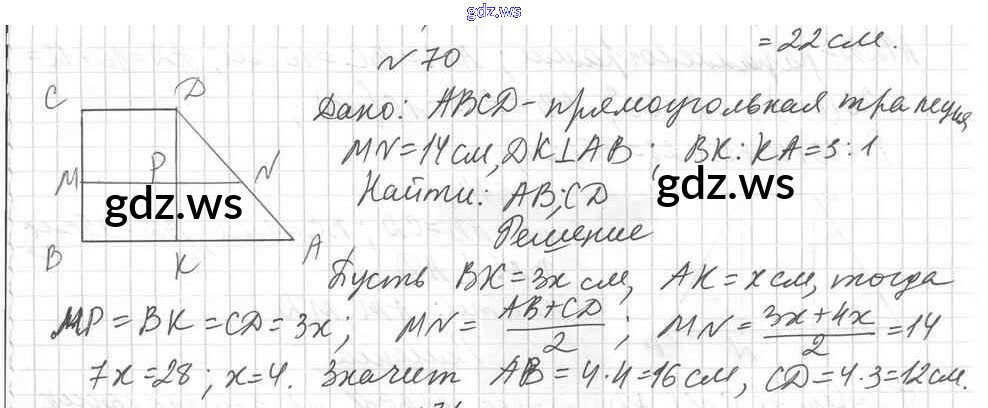 gdz.ws
= 22 см.
№ 70
C D
Дано: ABCD - прямоугольная трапеция,
MN = 14 см, DK⊥AB ; BK : KA = 3 : 1
M P N
gdz.ws
gdz.ws
Найти: AB; CD
Решение
B K A
Пусть BK = 3x см, AK = x см, тогда
MP = BK = CD = 3x; MN = (AB + CD)/2 ; MN = (3x + 4x)/2 = 14
7x = 28 ; x = 4. Значит AB = 4 · 4 = 16 см, CD = 4 · 3 = 12 см.